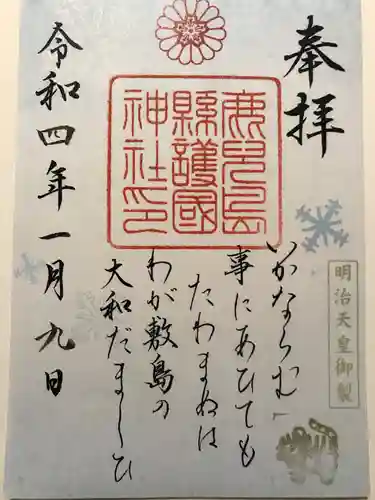 奉拝
明治天皇御製
鹿兒島
縣護國
神社印
いかならむ
事にあひても
たわまぬは
わが敷島の
大和だましひ
令和四年一月九日